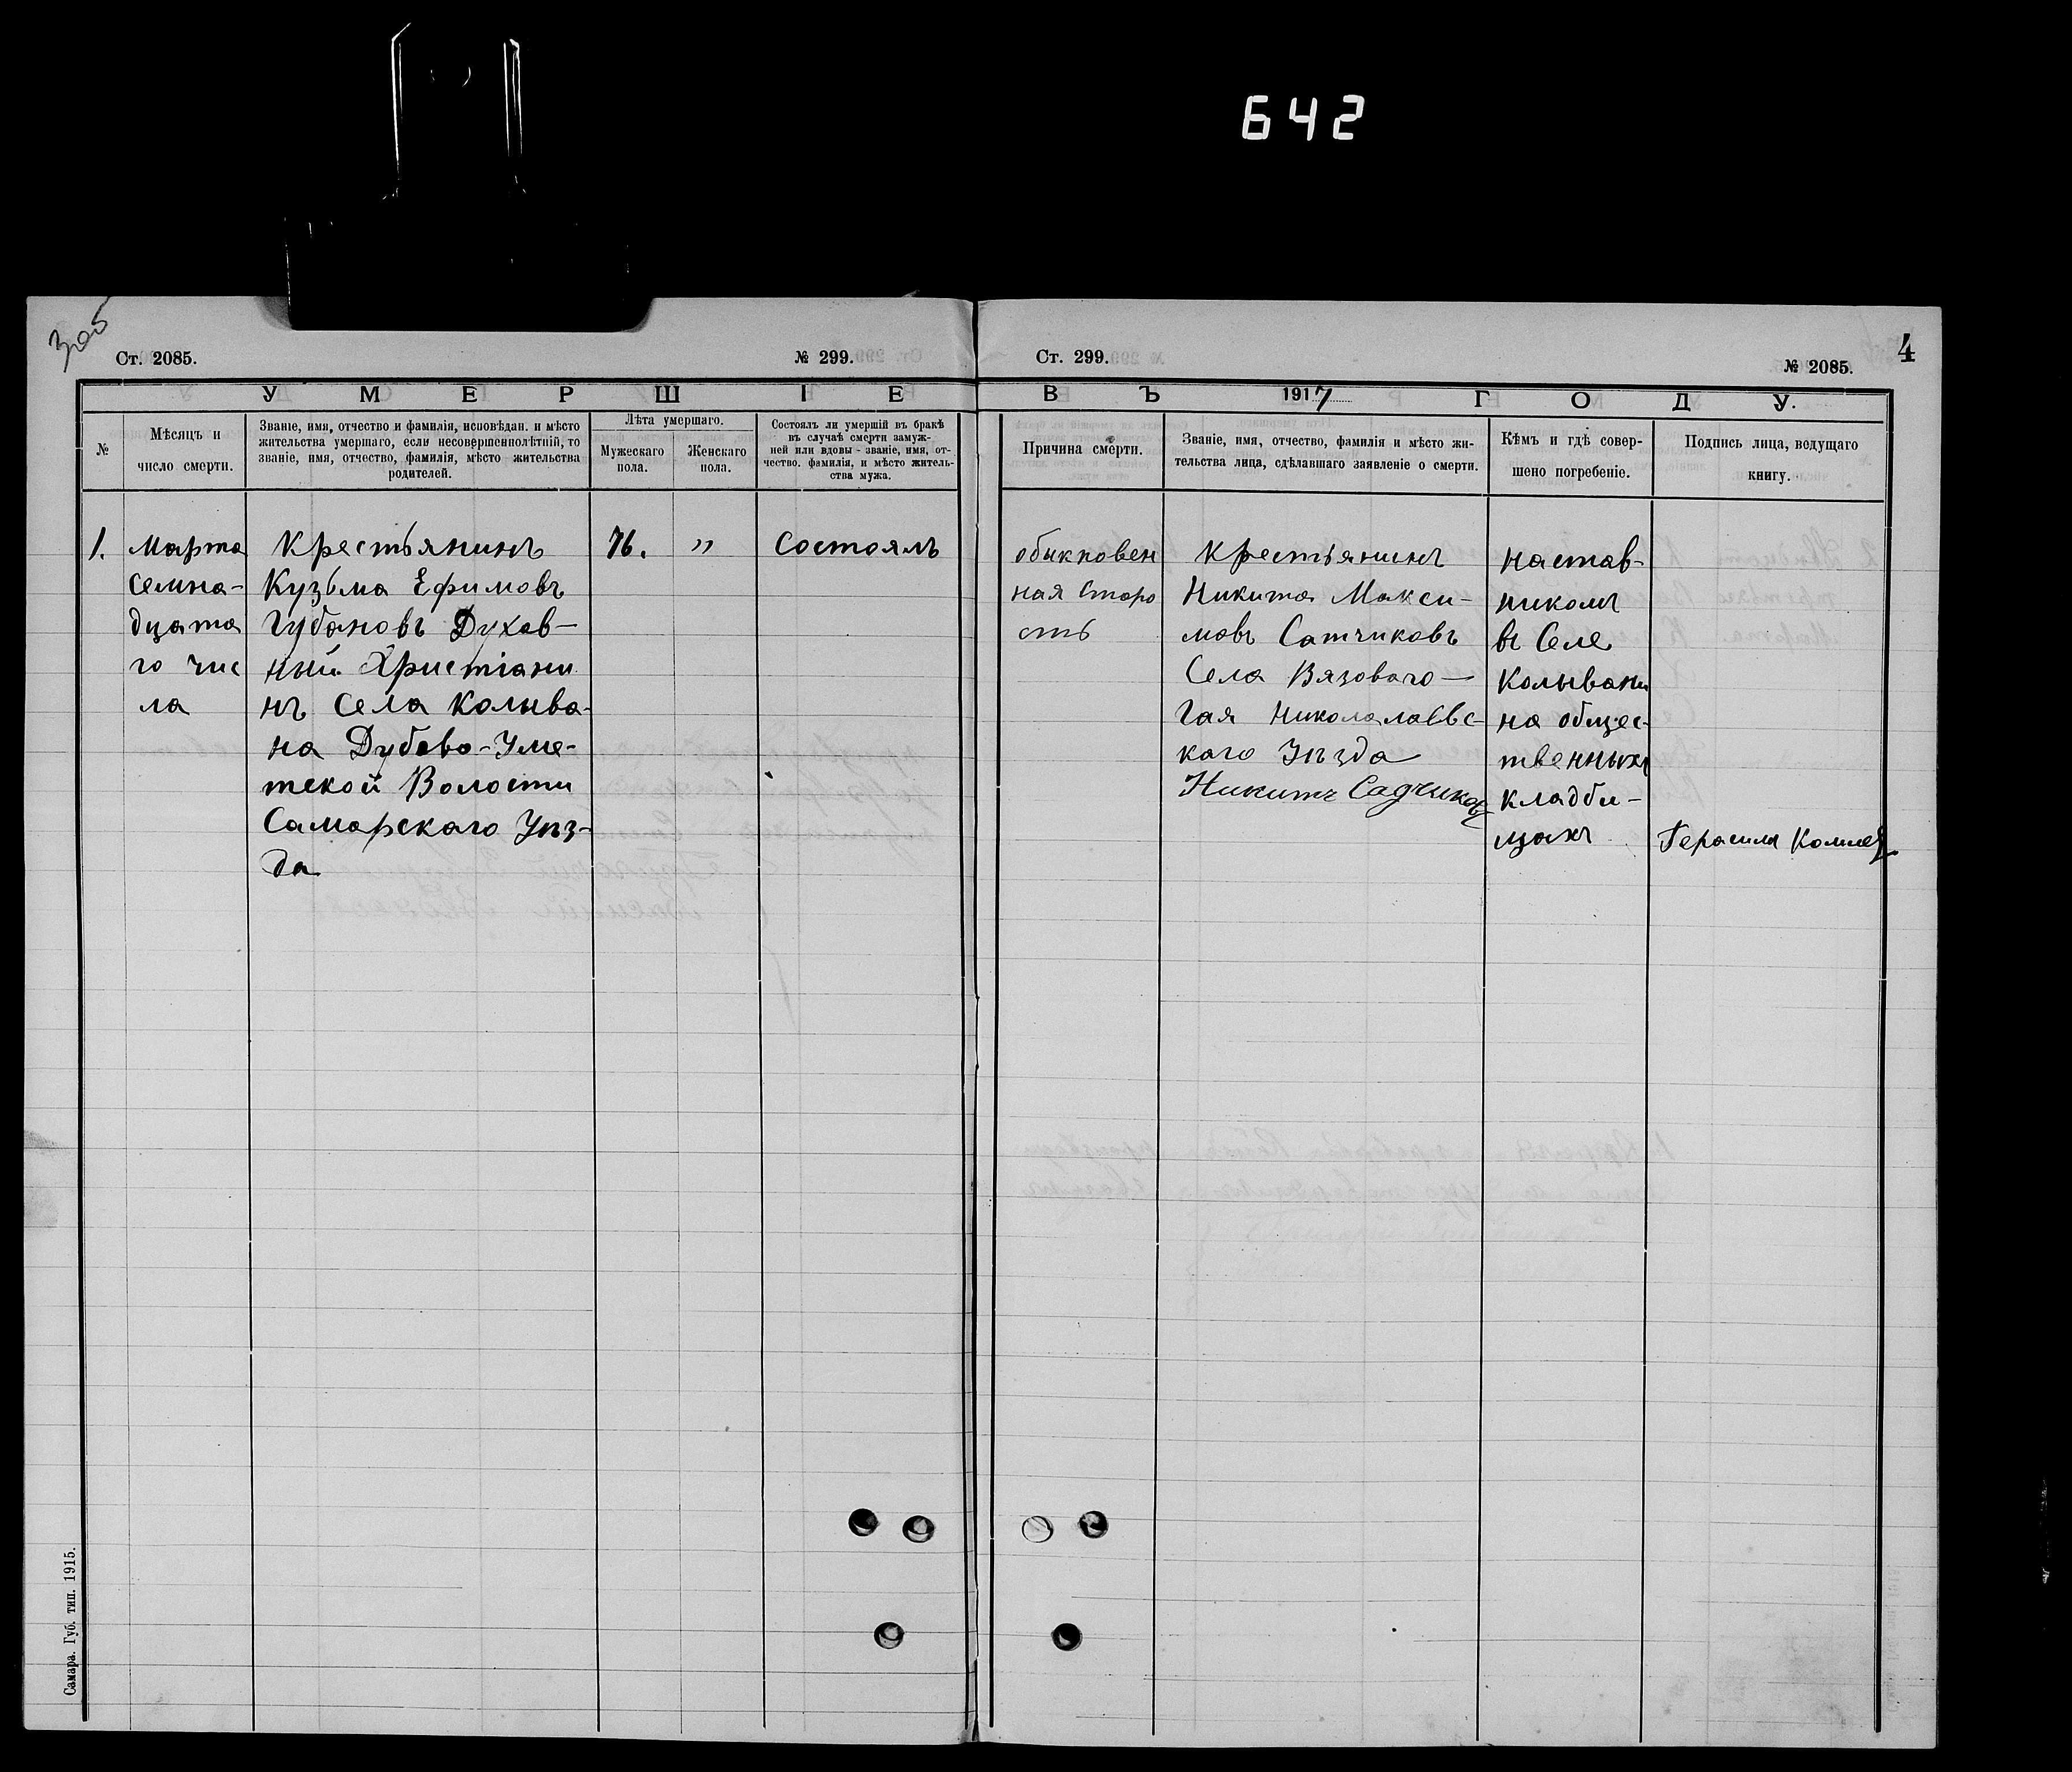 642
Ст. 2085.
№ 299.
Ст. 299.
№ 2085.
4
УМЕРШІЕ
ВЪ 1917 ГОДУ.
№
Мѣсяцъ и
число смерти.
Званіе, имя, отчество и фамилія, исповѣдан. и мѣсто
жительства умершаго, если несовершеннолѣтній, то
званіе, имя, отчество, фамилія, мѣсто жительства
родителей.
Лѣта умершаго.
Мужескаго
пола.
Женскаго
пола.
Состоялъ ли умершій въ бракѣ
въ случаѣ смерти замуж-
ней или вдовы - званіе, имя, от-
чество. фамилія, и мѣсто житель-
ства мужа.
Причина смерти.
Званіе, имя, отчество, фамилія и мѣсто жи-
тельства лица, сдѣлавшаго заявленіе о смерти.
Кѣмъ и гдѣ совер-
шено погребеніе.
Подпись лица, ведущаго
книгу.
1.
Марта
семна-
дцата
го чис
ла
Крестьянинъ
Кузьма Ефимовъ
Губановъ Духов-
ный Христіани
нъ Села Колыва-
на Дубово-Уме-
тской Волости
Самарскаго Уѣз-
да
76.
"
Состоялъ
обыкновен
ная Старо
сть
Крестьянинъ
Никита Макси-
мовъ Сатчиковъ
Села Вязоваго-
Гая Николалаевс-
каго Уѣзда
Никитъ Садчиковъ
настав-
никомъ
въ Селе
Колывани
на общес-
твенныхъ
кладби-
щахъ
Герасимъ
Самара. Губ. тип. 1915.